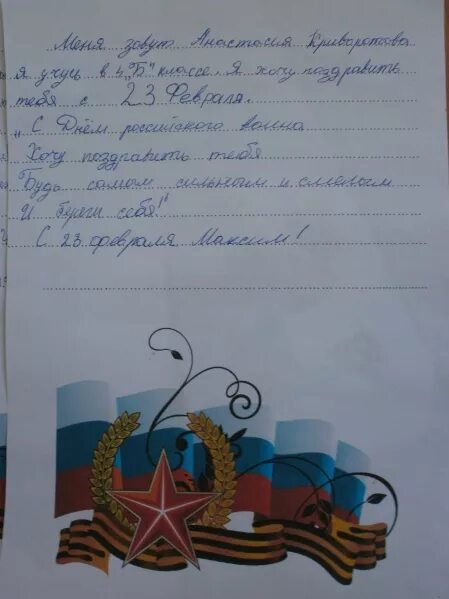 Меня зовут Анастасия Криворотова
я учусь в 4 „Б" классе. Я хочу поздравить
тебя с 23 Февраля.
„С Днём российского воина
Хочу поздравить тебя
Будь самым сильным и смелым
И береги себя!"
С 23 февраля Максим!